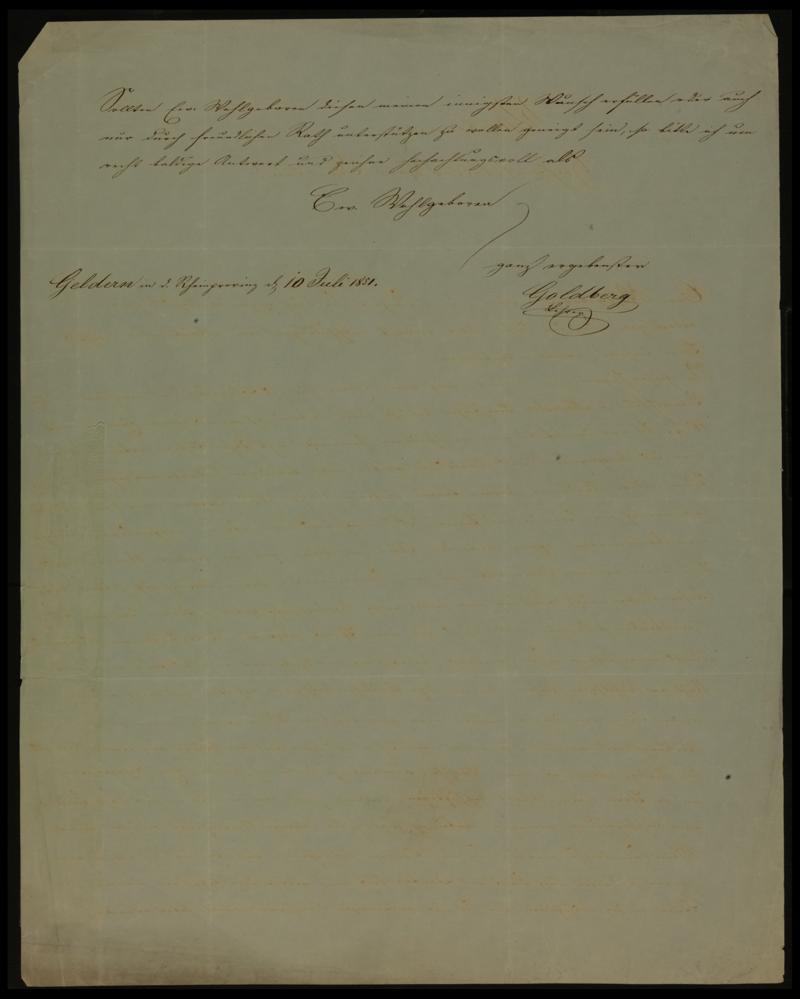 Sollten Ew. Wohlgeboren diesen meinen innigsten Wunsch erfüllen oder auch
nur durch freundlichen Rath unterstützen zu wollen geneigt sein, so bitte ich um
recht baldige Antwort und hochachtungsvoll als
Ew. Wohlgeboren
ganz ergebenster
Geldern in d. Rheinprovinz d. 10 Juli 1851.
Goldberg
Lehrer.